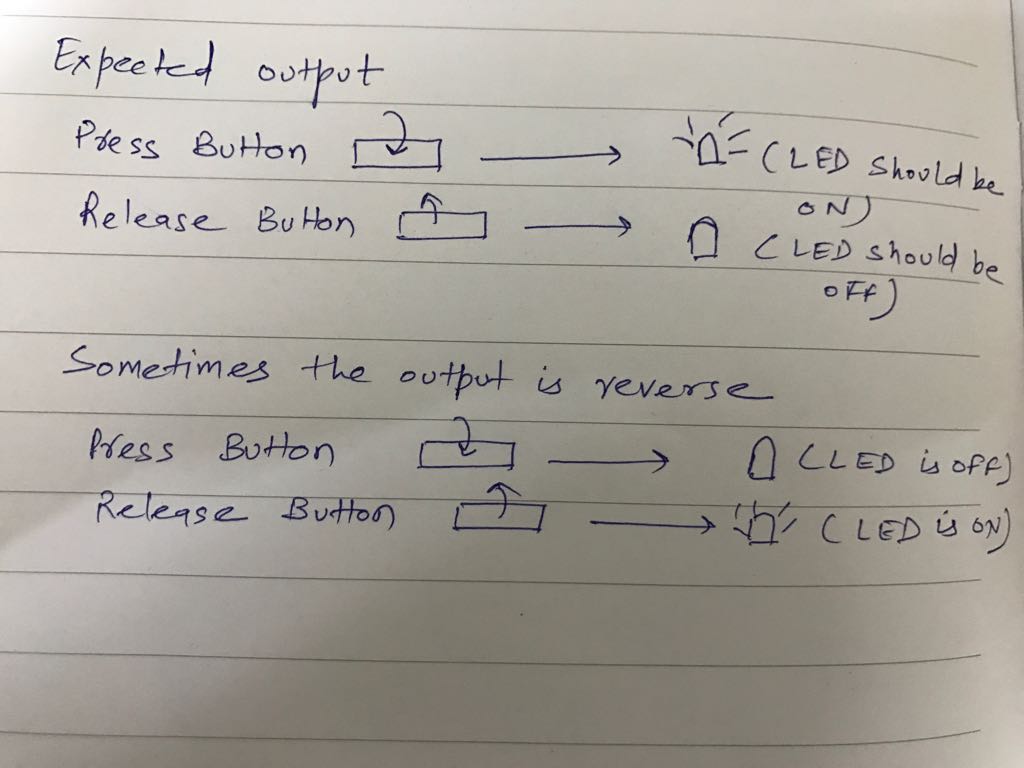 Expected output
Press Button (LED should be
ON)
Release Button (LED should be
OFF)
Sometimes the output is reverse
Press Button (LED is OFF)
Release Button (LED is ON)